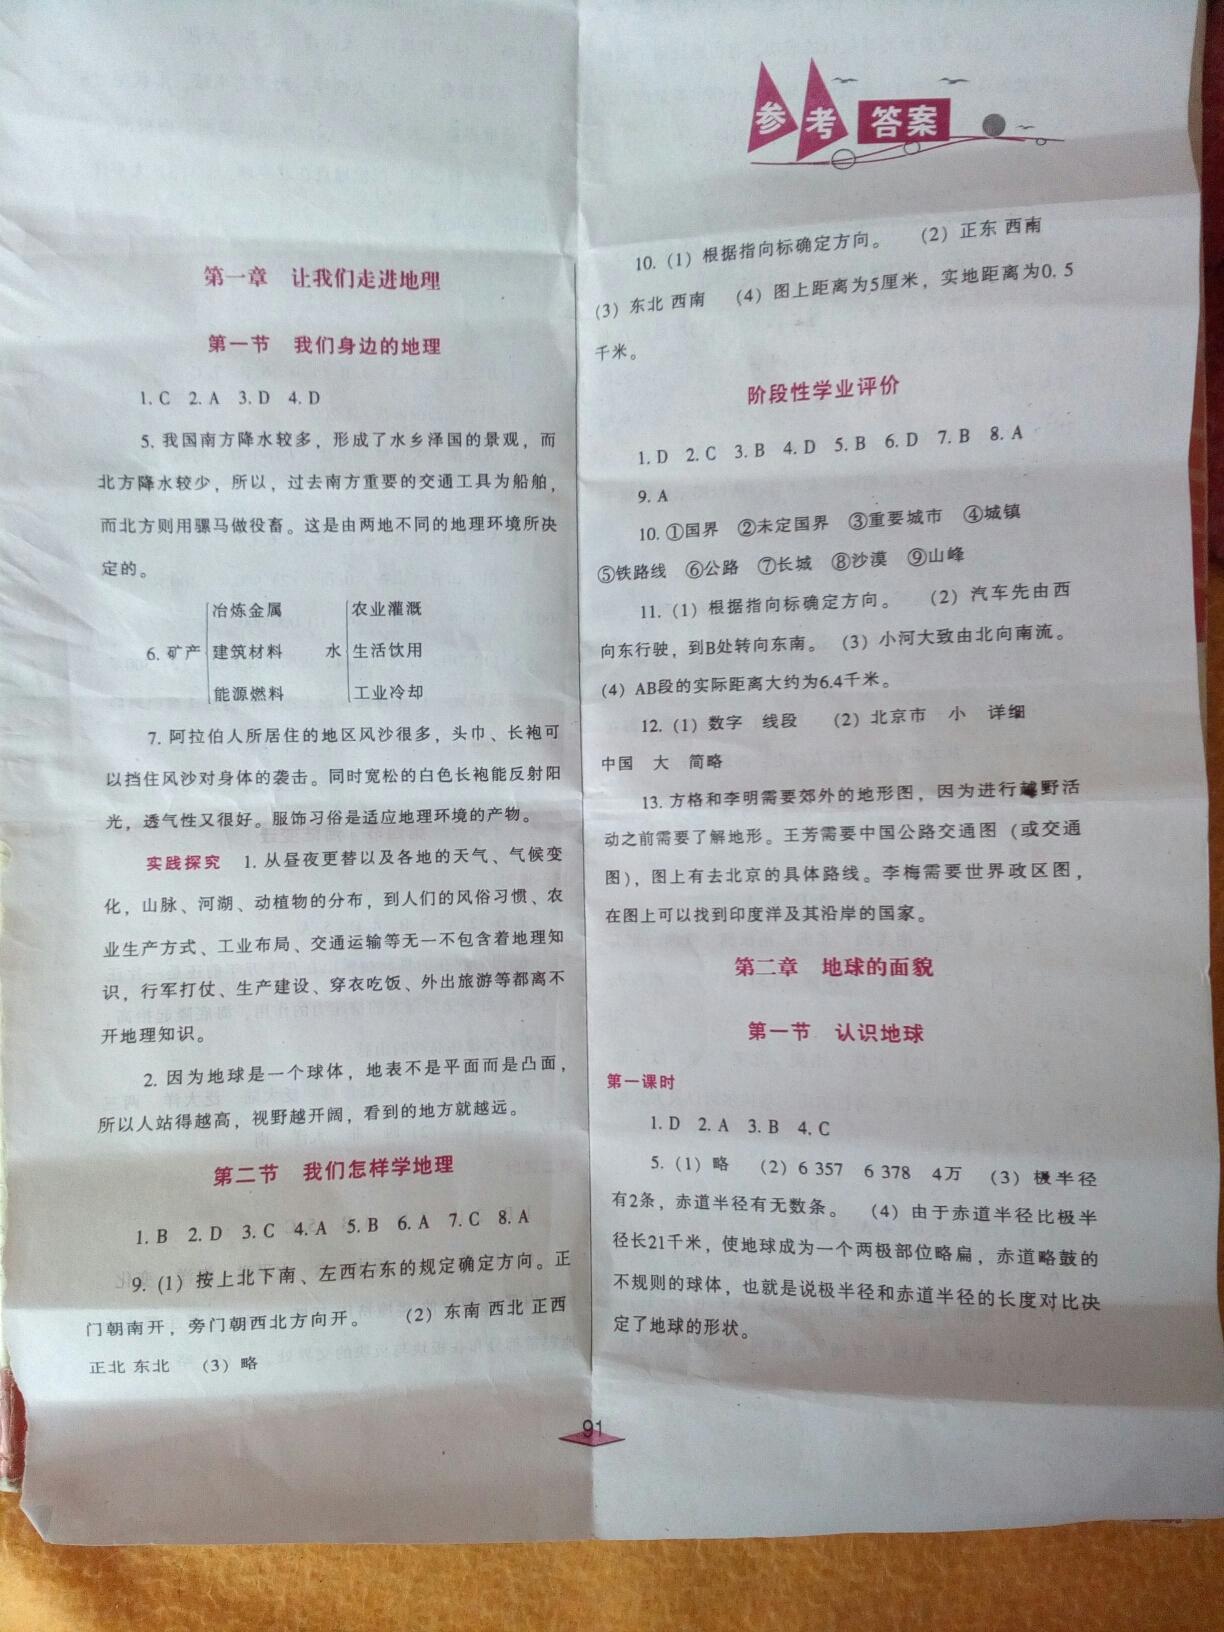 参考答案
第一章 让我们走进地理
第一节 我们身边的地理
1. C 2. A 3. D 4. D
5. 我国南方降水较多，形成了水乡泽国的景观，而
北方降水较少，所以，过去南方重要的交通工具为船舶，
而北方则用骡马做役畜。这是由两地不同的地理环境所决
定的。
冶炼金属 农业灌溉
6. 矿产 建筑材料 水 生活饮用
能源燃料 工业冷却
7. 阿拉伯人所居住的地区风沙很多，头巾、长袍可
以挡住风沙对身体的袭击。同时宽松的白色长袍能反射阳
光，透气性又很好。服饰习俗是适应地理环境的产物。
实践探究 1. 从昼夜更替以及各地的天气、气候变
化，山脉、河湖、动植物的分布，到人们的风俗习惯、农
业生产方式、工业布局、交通运输等无一不包含着地理知
识，行军打仗、生产建设、穿衣吃饭、外出旅游等都离不
开地理知识。
2. 因为地球是一个球体，地表不是平面而是凸面，
所以人站得越高，视野越开阔，看到的地方就越远。
第二节 我们怎样学地理
1. B 2. D 3. C 4. A 5. B 6. A 7. C 8. A
9. (1) 按上北下南、左西右东的规定确定方向。正
门朝南开，旁门朝西北方向开。 (2) 东南 西北 正西
正北 东北 (3) 略
10. (1) 根据指向标确定方向。 (2) 正东 西南
(3) 东北 西南 (4) 图上距离为5厘米，实地距离为0. 5
千米。
阶段性学业评价
1. D 2. C 3. B 4. D 5. B 6. D 7. B 8. A
9. A
10. ①国界 ②未定国界 ③重要城市 ④城镇
⑤铁路线 ⑥公路 ⑦长城 ⑧沙漠 ⑨山峰
11. (1) 根据指向标确定方向。 (2) 汽车先由西
向东行驶，到B处转向东南。 (3) 小河大致由北向南流。
(4) AB段的实际距离大约为6.4千米。
12. (1) 数字 线段 (2) 北京市 小 详细
中国 大 简略
13. 方格和李明需要郊外的地形图，因为进行越野活
动之前需要了解地形。王芳需要中国公路交通图 (或交通
图)，图上有去北京的具体路线。李梅需要世界政区图，
在图上可以找到印度洋及其沿岸的国家。
第二章 地球的面貌
第一节 认识地球
第一课时
1. D 2. A 3. B 4. C
5. (1) 略 (2) 6 357 6 378 4万 (3) 极半径
有2条，赤道半径有无数条。 (4) 由于赤道半径比极半
径长21千米，使地球成为一个两极部位略扁，赤道略鼓的
不规则的球体，也就是说极半径和赤道半径的长度对比决
定了地球的形状。
91